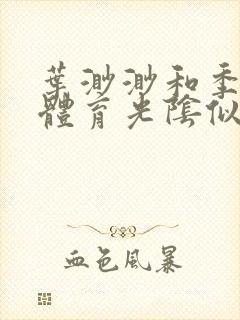 葉渺渺和季
體育光陰似
血色風暴